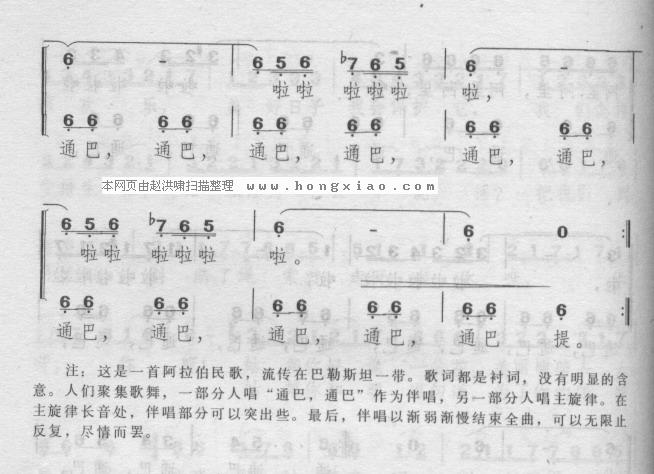 6 - 6 5 6 ♭7 6 5 6 -
啦啦 啦啦啦 啦，
6 6 6 6 6 6 6 6 6 6 6 6
通巴， 通巴， 通巴， 通巴， 通巴， 通巴，
本网页由赵洪啸扫描整理 www.hongxiao.com
6 5 6 ♭7 6 5 6 - 6 0
啦啦 啦啦啦 啦。
6 6 6 6 6 6 6 6 6 6 6
通巴， 通巴， 通巴， 通巴， 通巴 提。
注：这是一首阿拉伯民歌，流传在巴勒斯坦一带。歌词都是衬词，没有明显的含
意。人们聚集歌舞，一部分人唱“通巴，通巴”作为伴唱，另一部分人唱主旋律。在
主旋律长音处，伴唱部分可以突出些。最后，伴唱以渐弱渐慢结束全曲，可以无限止
反复，尽情而罢。